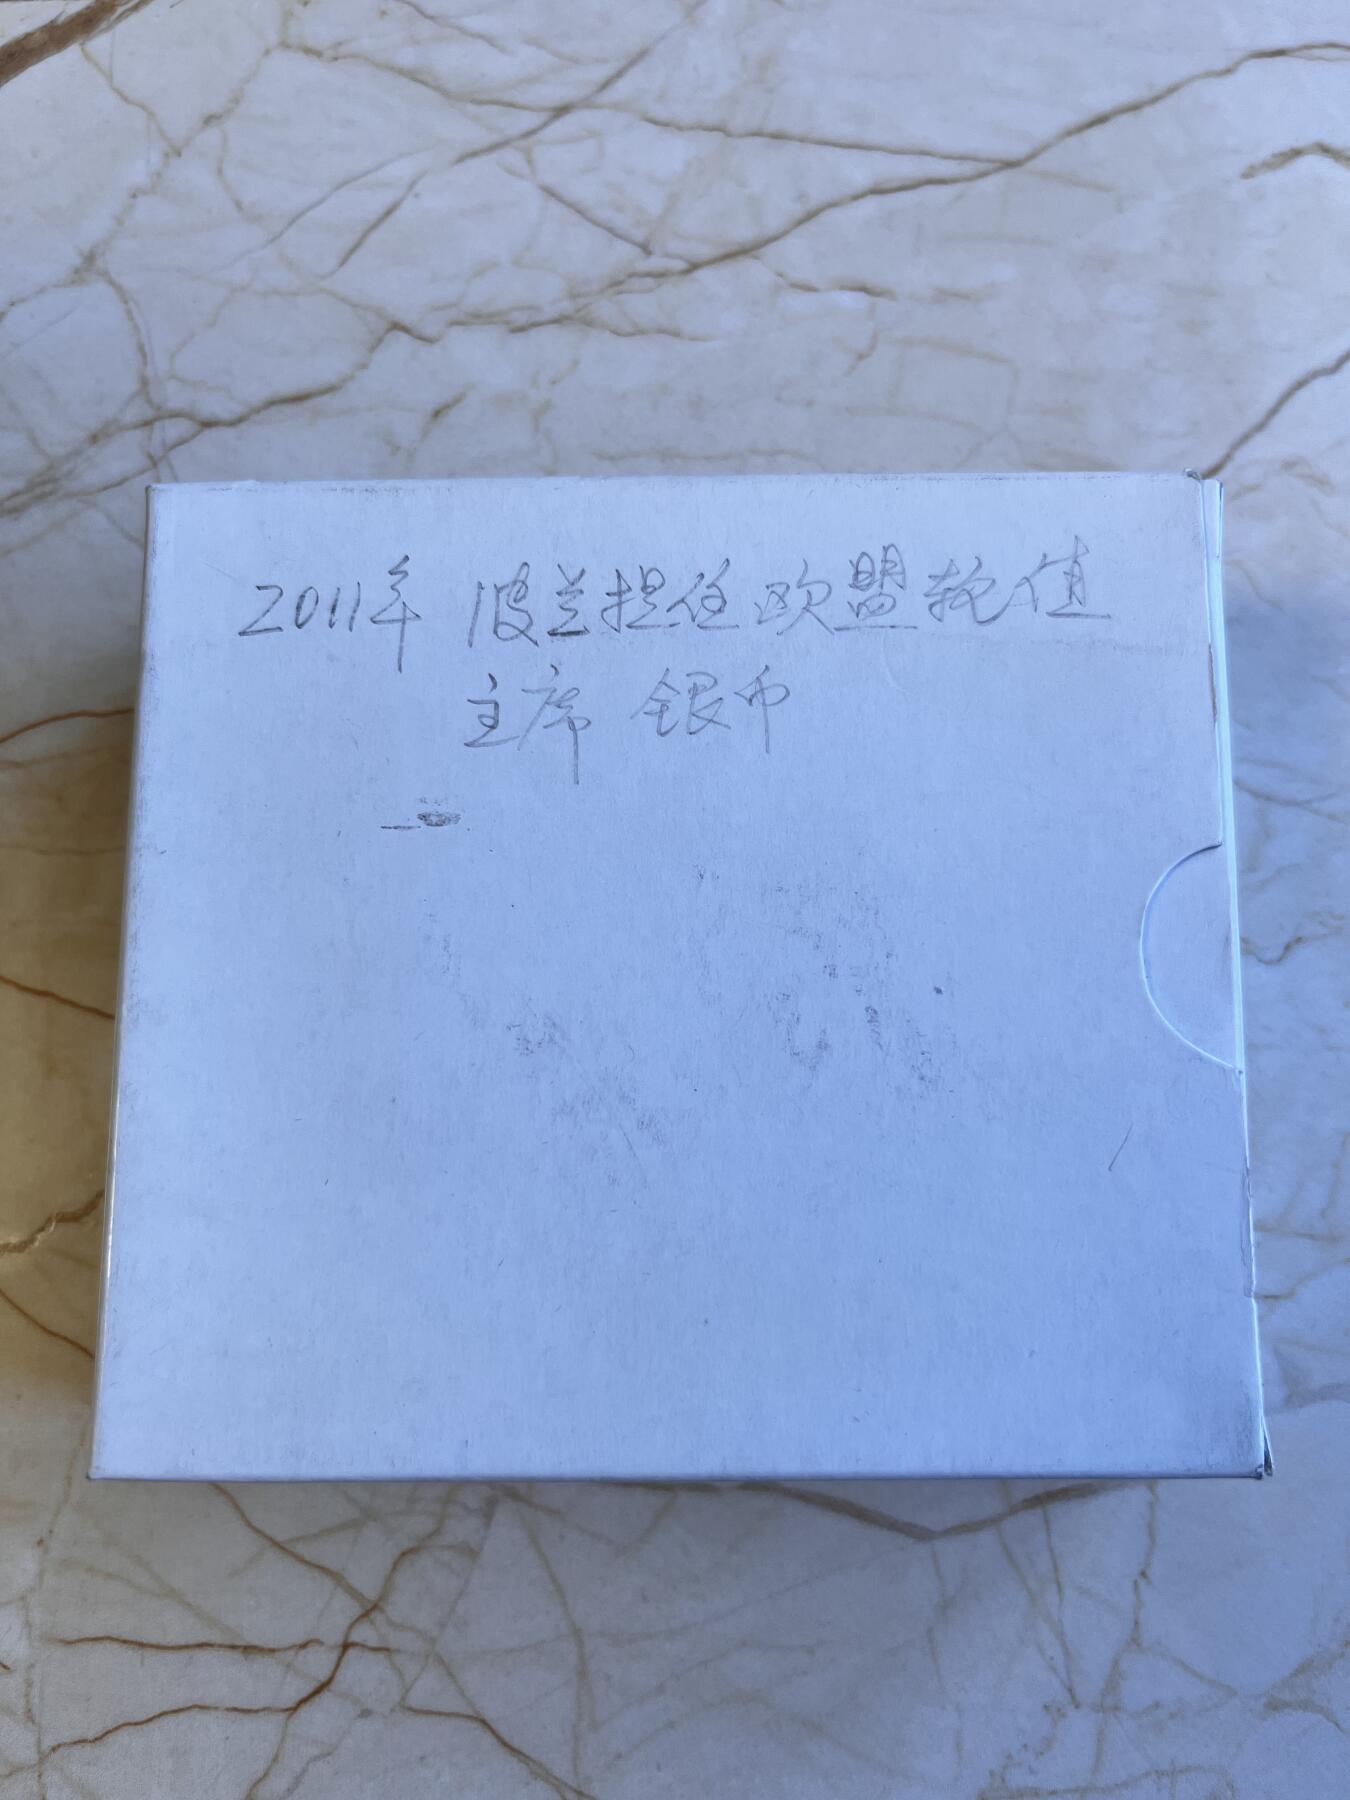 2011年 波兰担任欧盟轮值
主席 银币